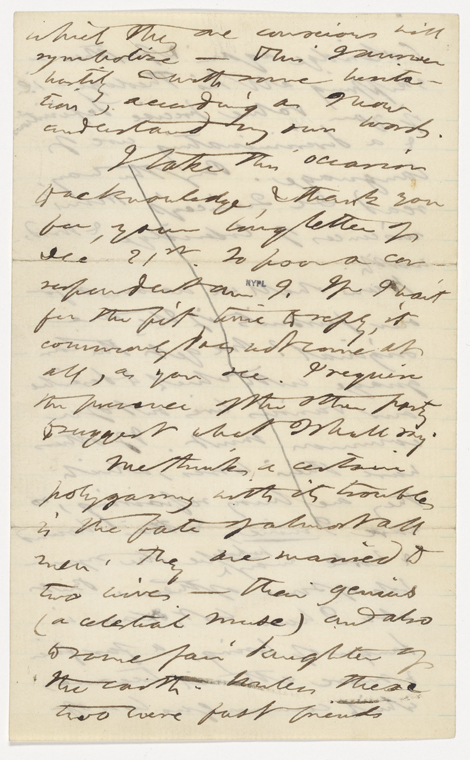 which they are conscious will
symbolize — This I answer
hastily & with some hesita-
tion, according as I now
understand my own words.
I take this occasion
to acknowledge & thank you
for, your long letter of
Dec 21st. So poor a cor-
respondent am I. If I wait
NYPL
for the fit time to reply, it
commonly does not come at
all, as you see. I require
the presence of the other party
to suggest what I shall say.
Methinks a certain
polygamy with its troubles
is the fate of almost all
men. They are married to
two wives — their genius
(a celestial muse) and also
to some fair daughter of
the earth. Unless these
two were fast friends